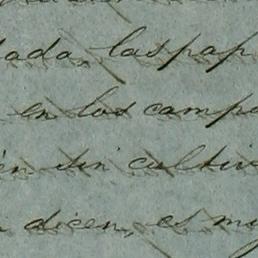 dada, las pap
en los campo
én sin cultiv
dicen, es mu